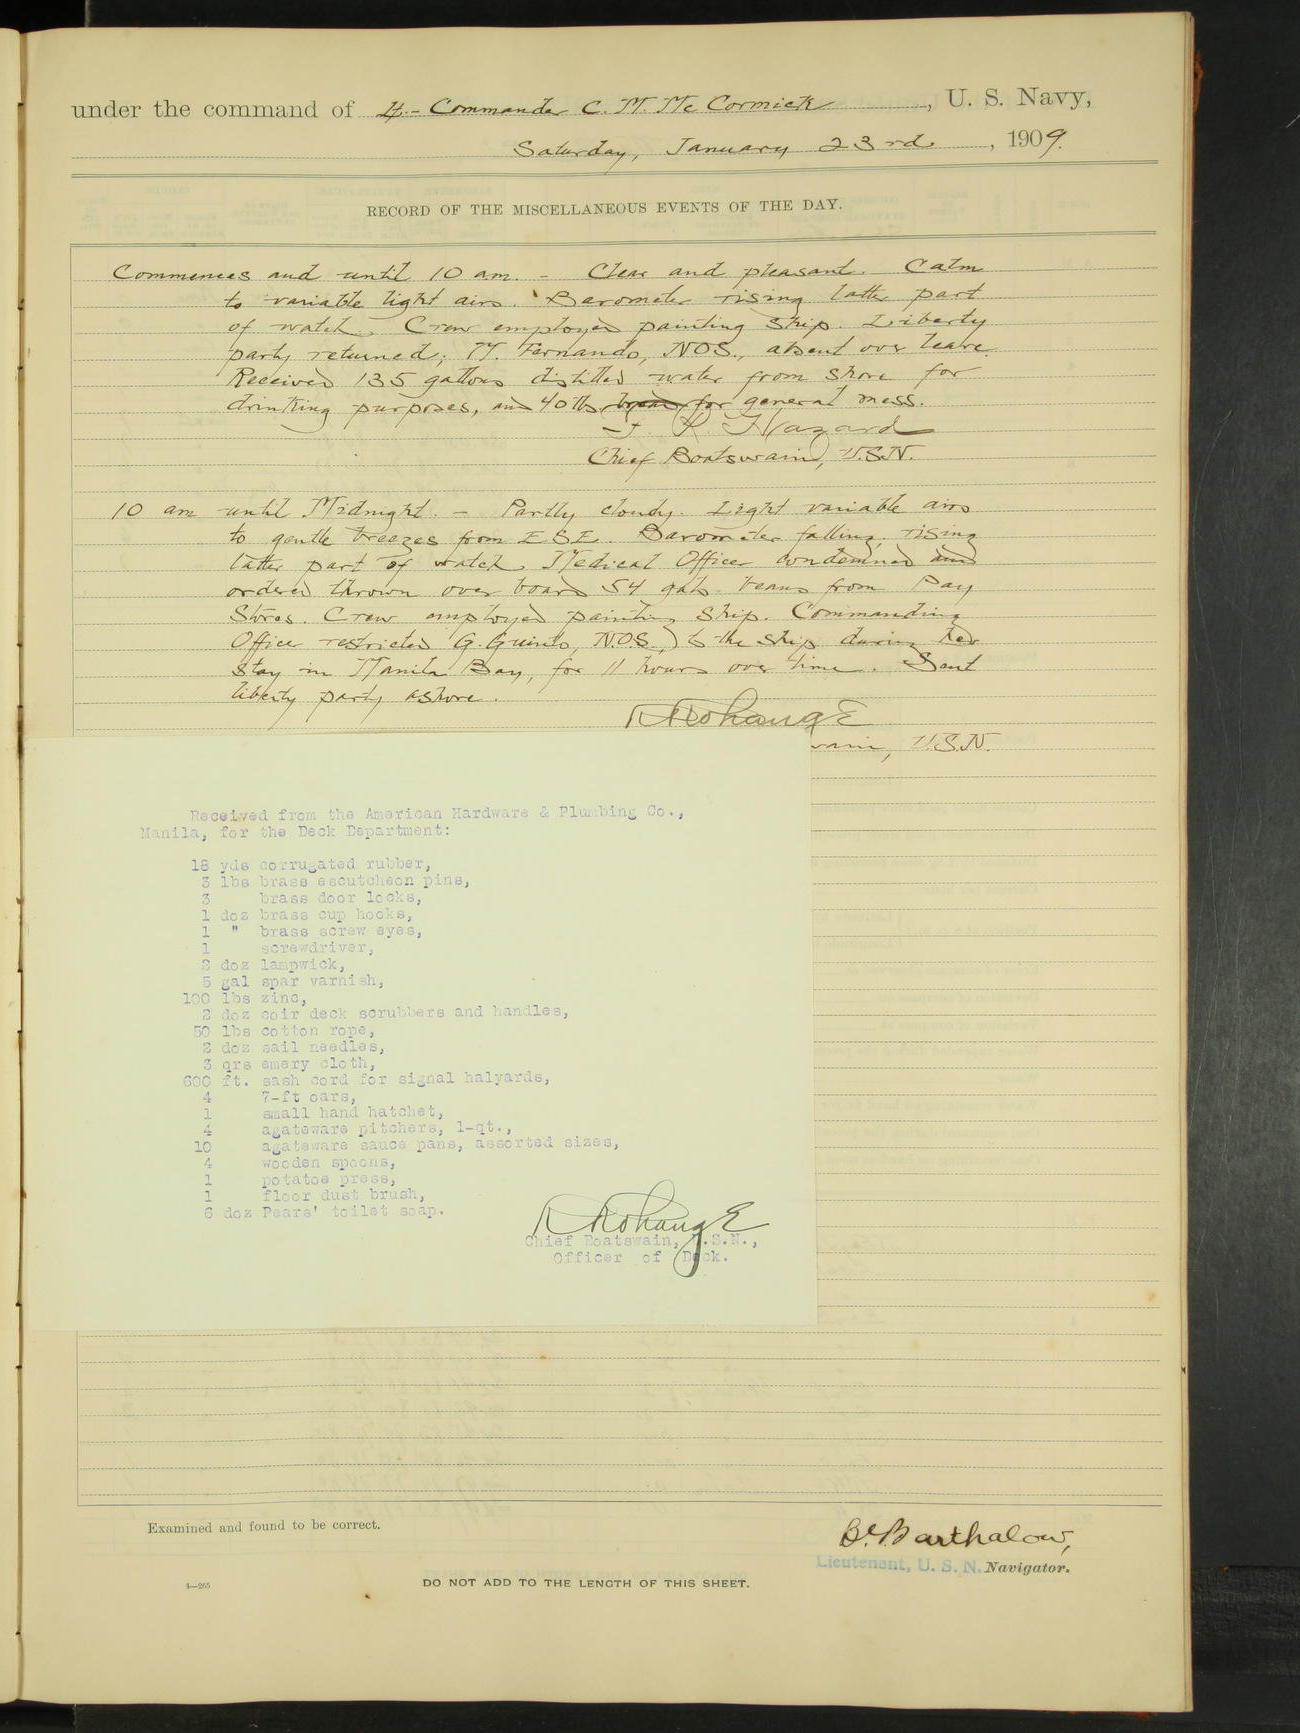 under the command of Lt.- Commander C. M. McCormick, U. S. Navy,
Saturday, January 23rd, 1909.
RECORD OF THE MISCELLANEOUS EVENTS OF THE DAY.
Commences and until 10 am. - Clear and pleasant. Calm
to variable light airs. Barometer rising latter part
of watch. Crew employed painting ship. Liberty
party returned; M. Fernando, NOS., absent over leave.
Received 135 gallons distilled water from shore for
drinking purposes, and 40 lbs. bread for general mess.
Hazard
Chief Boatswain, U.S.N.
10 am until Midnight. - Partly cloudy. Light variable airs
to gentle breezes from ESE. Barometer falling, rising
latter part of watch. Medical Officer condemned and
ordered thrown over board 54 gals. beans from Pay
Stores. Crew employed painting ship. Commanding
Officer restricted G. N.O.S., to the ship during her
stay in Manila Bay, for 11 hours over time. Sent
liberty party ashore.
wain, U.S.N.
Received from the American Hardware & Plumbing Co.,
Manila, for the Deck Department:
18 yds corrugated rubber,
3 lbs brass escutcheon pins,
3 brass door locks,
1 doz brass cup hooks,
1 " brass screw eyes,
1 screwdriver,
2 doz lampwick,
5 gal spar varnish,
100 lbs zinc,
2 doz coir deck scrubbers and handles,
50 lbs cotton rope,
2 doz sail needles,
3 qrs emery cloth,
600 ft. sash cord for signal halyards,
4 7-ft oars,
1 small hand hatchet,
4 agateware pitchers, 1-qt.,
10 agateware sauce pans, assorted sizes,
4 wooden spoons,
1 potatoe press,
1 floor dust brush,
6 doz Pears' toilet soap.
Chief Boatswain, U.S.N.,
Officer of Deck.
Examined and found to be correct.
Barthalow,
Lieutenant, U. S. N. Navigator.
4—265
DO NOT ADD TO THE LENGTH OF THIS SHEET.